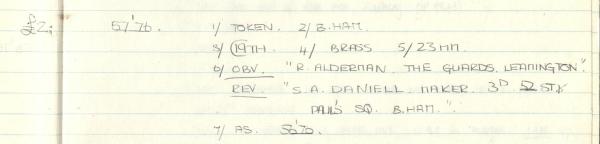 57'76. 1/ TOKEN. 2/ B.HAM.
3/ 19TH. 4/ BRASS 5/ 23MM.
6/ OBV. "R. ALDERMAN. THE GUARDS. LEAMINGTON".
REV. "S.A. DANIELL. MAKER. 3D. ST
PAUL'S SQ. B.HAM.".
7/ AS. 56'76.